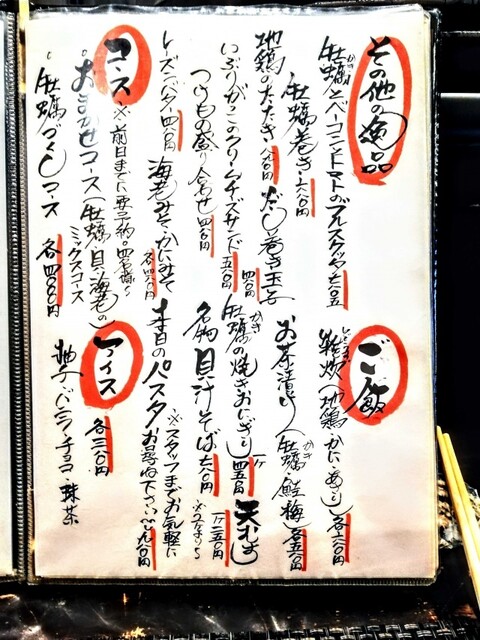 その他の逸品
牡蠣とベーコントマトのブルスケッタ七〇〇円
牡蠣巻き六八〇円
地鶏のたたき八八〇円
だし巻き玉子四八〇円
いぶりがっこのクリームチーズサンド五五〇円
つけもの盛り合わせ四八〇円
レーズンバター四八〇円
海老みそ・かにみそ各四八〇円
コース
※前日までに要予約。四名様〜
おまかせコース(牡蠣、貝、海老のミックスコース
牡蠣づくしコース
各四〇〇〇円
ご飯
雑炊(地鶏・かに・あさり)各六八〇円
お茶漬け(牡蠣・鮭・梅)各五八〇円
牡蠣の焼きおにぎり一ケ四五〇円
天むす一ケ三五〇円
※二ケより
名物貝汁そば七八〇円
本日のパスタ九八〇円〜
※スタッフまでお気軽にお尋ね下さい
アイス
各三八〇円
柚子・バニラ・チョコ・抹茶